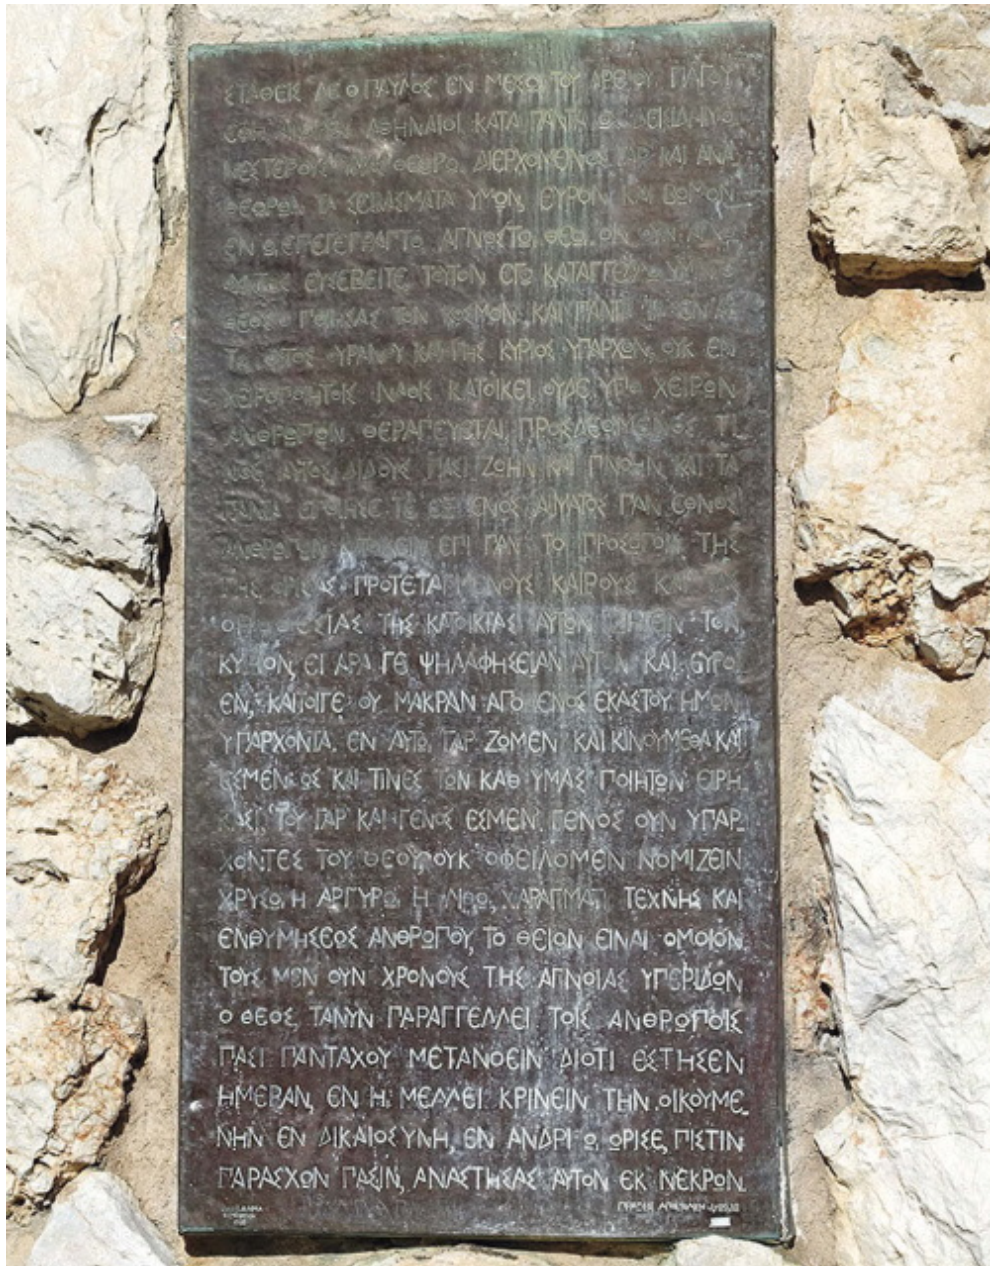 ΣΤΑΘΕΙΣ ΔΕ Ο ΠΑΥΛΟΣ ΕΝ ΜΕΣΩ ΤΟΥ ΑΡΕΙΟΥ ΠΑΓΟΥ
ΕΦΗ ΑΘΗΝΑΙΟΙ ΚΑΤΑ ΠΑΝΤΑ ΩΣ ΔΕΙΣΙΔΑΙΜΟ
ΝΕΣΤΕΡΟΥΣ ΥΜΑΣ ΘΕΩΡΩ. ΔΙΕΡΧΟΜΕΝΟΣ ΓΑΡ ΚΑΙ ΑΝΑ
ΘΕΩΡΩΝ ΤΑ ΣΕΒΑΣΜΑΤΑ ΥΜΩΝ, ΕΥΡΟΝ ΚΑΙ ΒΩΜΟΝ
ΕΝ Ω ΕΠΕΓΕΓΡΑΠΤΟ, ΑΓΝΩΣΤΩ ΘΕΩ. ΟΝ ΟΥΝ ΑΓΝΟ
ΟΥΝΤΕΣ ΕΥΣΕΒΕΙΤΕ ΤΟΥΤΟΝ ΕΓΩ ΚΑΤΑΓΓΕΛΛΩ ΥΜΙΝ
ΘΕΟΣ Ο ΠΟΙΗΣΑΣ ΤΟΝ ΚΟΣΜΟΝ ΚΑΙ ΠΑΝΤΑ ΤΑ ΕΝ ΑΥ
ΤΩ, ΟΥΤΟΣ ΟΥΡΑΝΟΥ ΚΑΙ ΓΗΣ ΚΥΡΙΟΣ ΥΠΑΡΧΩΝ, ΟΥΚ ΕΝ
ΧΕΙΡΟΠΟΙΗΤΟΙΣ ΝΑΟΙΣ ΚΑΤΟΙΚΕΙ, ΟΥΔΕ ΥΠΟ ΧΕΙΡΩΝ
ΑΝΘΡΩΠΩΝ ΘΕΡΑΠΕΥΕΤΑΙ, ΠΡΟΣΔΕΟΜΕΝΟΣ ΤΙ
ΝΟΣ ΑΥΤΟΣ ΔΙΔΟΥΣ ΠΑΣΙ ΖΩΗΝ ΚΑΙ ΠΝΟΗΝ ΚΑΙ ΤΑ
ΠΑΝΤΑ ΕΠΟΙΗΣΕ ΤΕ ΕΞ ΕΝΟΣ ΑΙΜΑΤΟΣ ΠΑΝ ΕΘΝΟΣ
ΑΝΘΡΩΠΩΝ ΚΑΤΟΙΚΕΙΝ ΕΠΙ ΠΑΝ ΤΟ ΠΡΟΣΩΠΟΝ ΤΗΣ
ΓΗΣ ΟΡΙΣΑΣ ΠΡΟΤΕΤΑΓΜΕΝΟΥΣ ΚΑΙΡΟΥΣ
ΟΡΟΘΕΣΙΑΣ ΤΗΣ ΚΑΤΟΙΚΙΑΣ ΑΥΤΩΝ ΖΗΤΕΙΝ ΤΟΝ
ΚΥΡΙΟΝ, ΕΙ ΑΡΑ ΓΕ ΨΗΛΑΦΗΣΕΙΑΝ ΑΥΤΟΝ ΚΑΙ ΕΥΡΟΙ
ΕΝ, ΚΑΙΤΟΙΓΕ ΟΥ ΜΑΚΡΑΝ ΑΠΟ ΕΝΟΣ ΕΚΑΣΤΟΥ ΗΜΩΝ
ΥΠΑΡΧΟΝΤΑ. ΕΝ ΑΥΤΩ ΓΑΡ ΖΩΜΕΝ ΚΑΙ ΚΙΝΟΥΜΕΘΑ ΚΑΙ
ΕΣΜΕΝ ΩΣ ΚΑΙ ΤΙΝΕΣ ΤΩΝ ΚΑΘ ΥΜΑΣ ΠΟΙΗΤΩΝ ΕΙΡΗ
ΚΑΣΙ, ΤΟΥ ΓΑΡ ΚΑΙ ΓΕΝΟΣ ΕΣΜΕΝ. ΓΕΝΟΣ ΟΥΝ ΥΠΑΡ
ΧΟΝΤΕΣ ΤΟΥ ΘΕΟΥ, ΟΥΚ ΟΦΕΙΛΟΜΕΝ ΝΟΜΙΖΕΙΝ
ΧΡΥΣΩ, Η ΑΡΓΥΡΩ Η ΛΙΘΩ, ΧΑΡΑΓΜΑΤΙ ΤΕΧΝΗΣ ΚΑΙ
ΕΝΘΥΜΗΣΕΩΣ ΑΝΘΡΩΠΟΥ, ΤΟ ΘΕΙΟΝ ΕΙΝΑΙ ΟΜΟΙΟΝ.
ΤΟΥΣ ΜΕΝ ΟΥΝ ΧΡΟΝΟΥΣ ΤΗΣ ΑΓΝΟΙΑΣ ΥΠΕΡΙΔΩΝ
Ο ΘΕΟΣ, ΤΑΝΥΝ ΠΑΡΑΓΓΕΛΛΕΙ ΤΟΙΣ ΑΝΘΡΩΠΟΙΣ
ΠΑΣΙ ΠΑΝΤΑΧΟΥ ΜΕΤΑΝΟΕΙΝ ΔΙΟΤΙ ΕΣΤΗΣΕΝ
ΗΜΕΡΑΝ, ΕΝ Η ΜΕΛΛΕΙ ΚΡΙΝΕΙΝ ΤΗΝ ΟΙΚΟΥΜΕ
ΝΗΝ ΕΝ ΔΙΚΑΙΟΣΥΝΗ, ΕΝ ΑΝΔΡΙ Ω ΩΡΙΣΕ, ΠΙΣΤΙΝ
ΠΑΡΑΣΧΩΝ ΠΑΣΙΝ, ΑΝΑΣΤΗΣΑΣ ΑΥΤΟΝ ΕΚ ΝΕΚΡΩΝ.